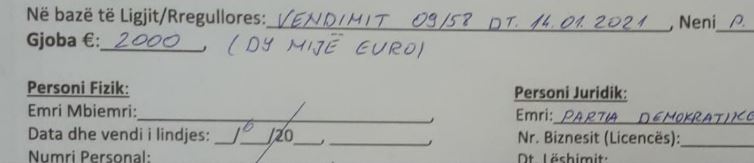 Në bazë të Ligjit/Rregullores: VENDIMIT 09/58 DT. 14.01.2021, Neni P.
Gjoba €: 2000, (DY MIJË EURO)
Personi Fizik:
Emri Mbiemri:
Data dhe vendi i lindjes: __/__/20__, ______,
Numri Personal:
Personi Juridik:
Emri: PARTIA DEMOKRATIKE
Nr. Biznesit (Licencës):
Dt. Lëshimit: